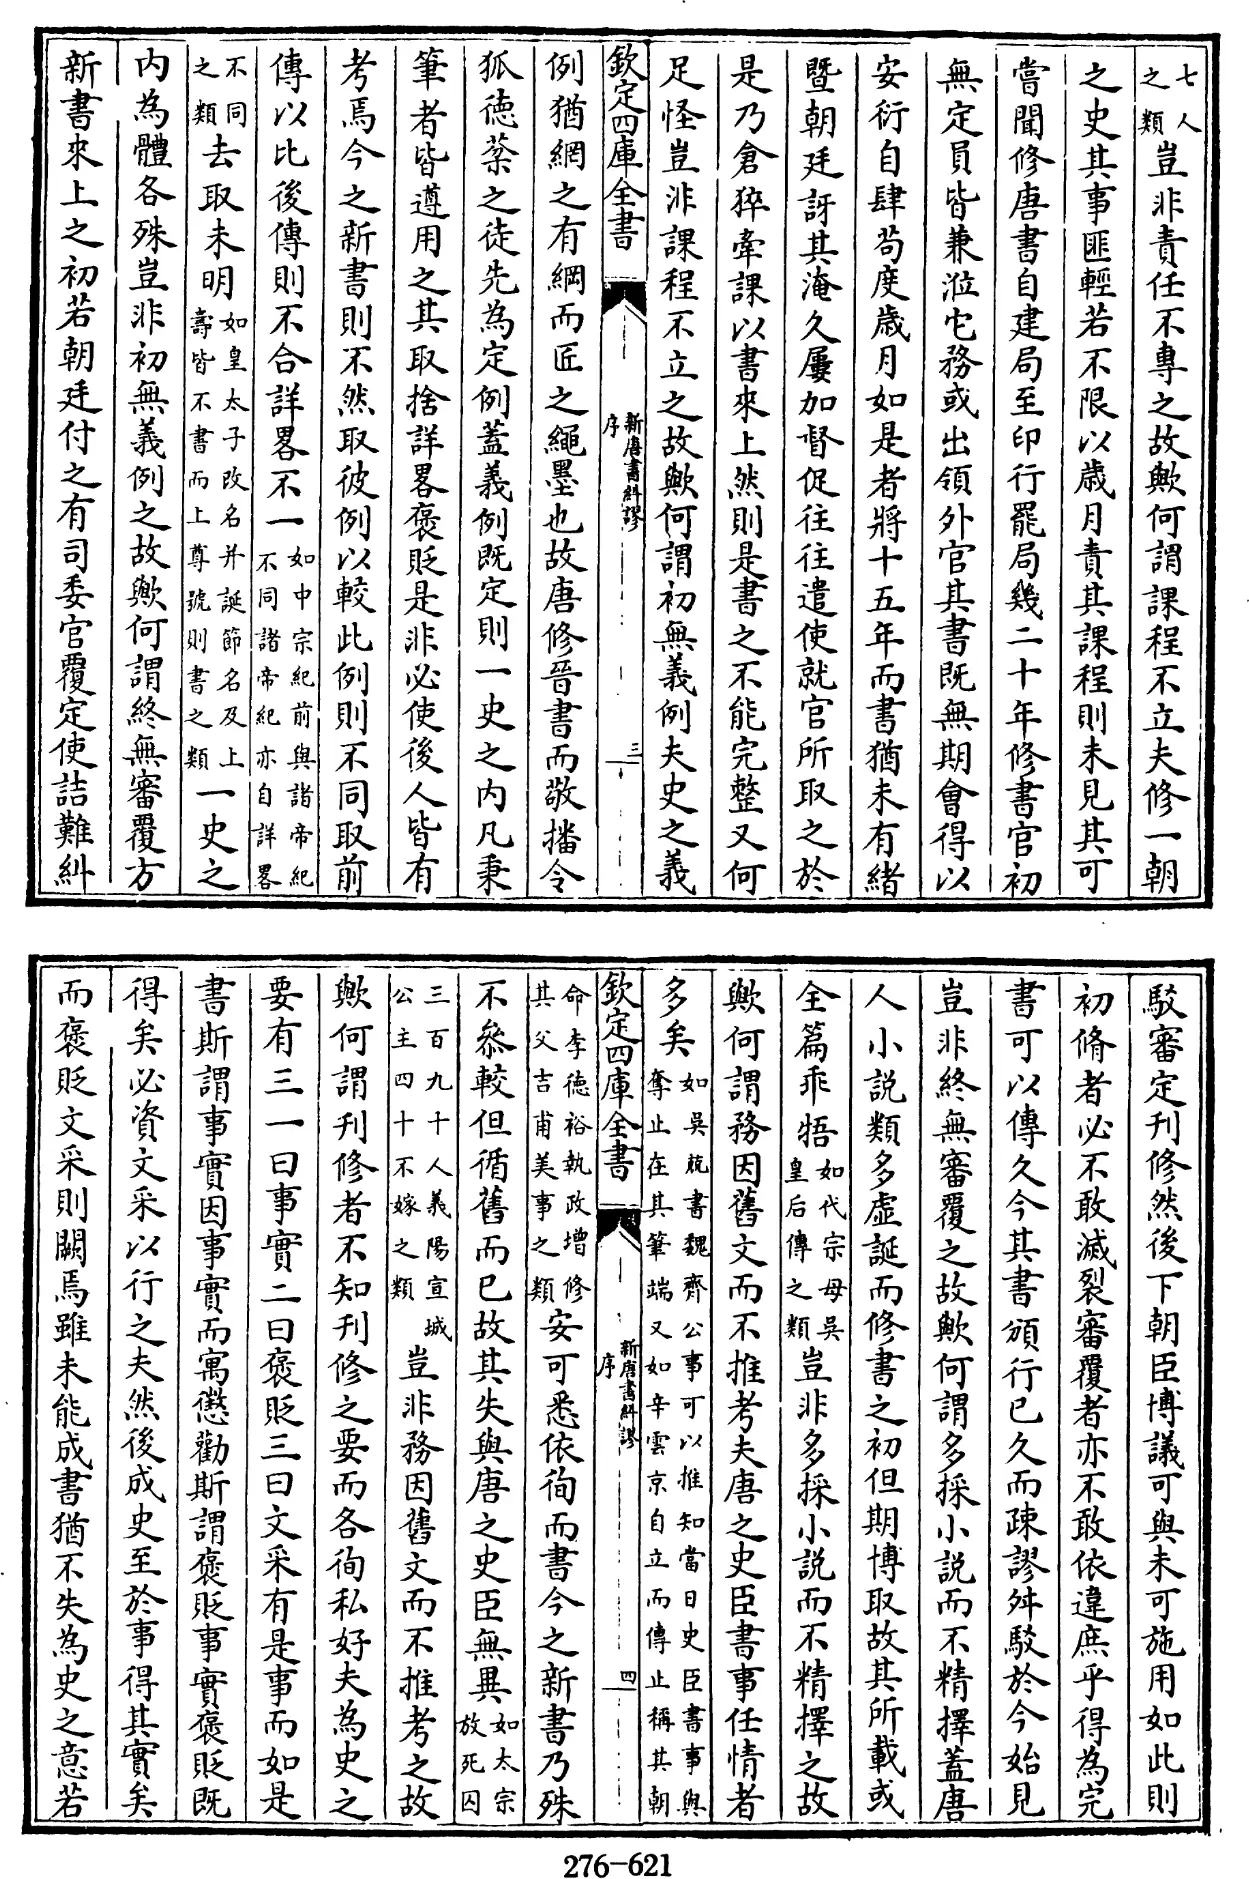 七人之類豈非責任不專之故歟何謂課程不立夫修一朝
之史其事匪輕若不限以歳月責其課程則未見其可
嘗聞修唐書自建局至印行罷局幾二十年修書官初
無定員皆兼涖它務或出領外官其書既無期會得以
安衍自肆苟度歳月如是者將十五年而書猶未有緒
暨朝廷訝其淹久屢加督促往往遣使就官所取之於
是乃倉猝牽課以書來上然則是書之不能完整又何
足怪豈非課程不立之故歟何謂初無義例夫史之義
欽定四庫全書
新唐書糾謬
序
三
例猶網之有綱而匠之繩墨也故唐修晉書而敬播令
狐徳棻之徒先為定例蓋義例既定則一史之内凡秉
筆者皆遵用之其取捨詳畧褒貶是非必使後人皆有
考焉今之新書則不然取彼例以較此例則不同取前
傳以比後傳則不合詳畧不一如中宗紀前與諸帝紀不同諸帝紀亦自詳畧
不同之類去取未明如皇太子改名并誕節名及上壽皆不書而上尊號則書之類一史之
内為體各殊豈非初無義例之故歟何謂終無審覆方
新書來上之初若朝廷付之有司委官覆定使詰難糾
駁審定刊修然後下朝臣博議可與未可施用如此則
初脩者必不敢滅裂審覆者亦不敢依違庶乎得為完
書可以傳久今其書頒行已久而疎謬舛駁於今始見
豈非終無審覆之故歟何謂多採小説而不精擇蓋唐
人小説類多虛誕而修書之初但期博取故其所載或
全篇乖牾如代宗母吳皇后傳之類豈非多採小説而不精擇之故
歟何謂務因舊文而不推考夫唐之史臣書事任情者
多矣如吳兢書魏齊公事可以推知當日史臣書事與奪止在其筆端又如辛雲京自立而傳止稱其朝
欽定四庫全書
新唐書糾謬
序
四
命李徳裕執政增修其父吉甫美事之類安可悉依徇而書今之新書乃殊
不叅較但循舊而已故其失與唐之史臣無異如太宗放死囚
三百九十人義陽宣城公主四十不嫁之類豈非務因舊文而不推考之故
歟何謂刊修者不知刊修之要而各徇私好夫為史之
要有三一曰事實二曰褒貶三曰文采有是事而如是
書斯謂事實因事實而寓懲勸斯謂褒貶事實褒貶既
得矣必資文采以行之夫然後成史至於事得其實矣
而褒貶文采則闕焉雖未能成書猶不失為史之意若
276-621